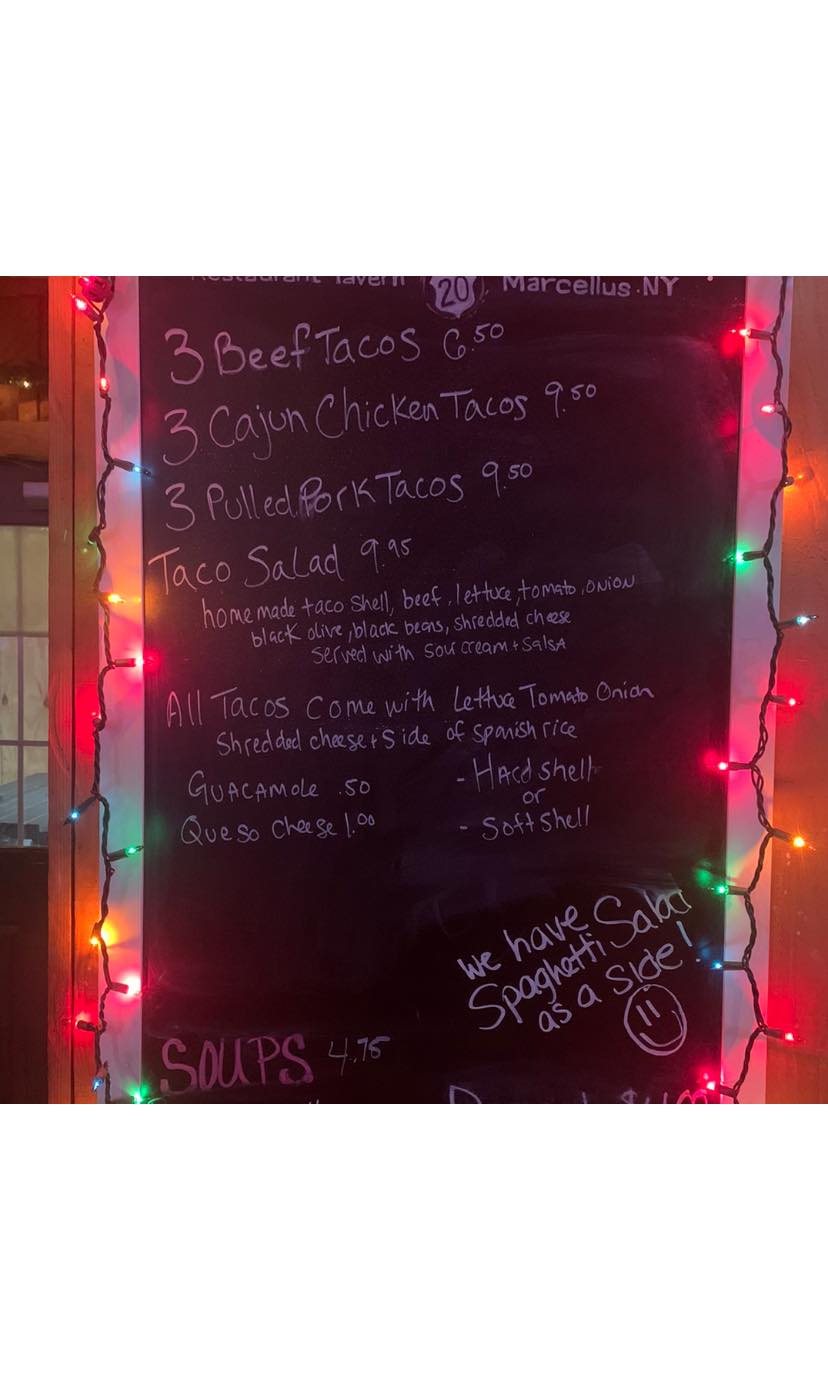 Restaurant Tavern 20 Marcellus.NY
3 Beef Tacos 6.50
3 Cajun Chicken Tacos 9.50
3 Pulled Pork Tacos 9.50
Taco Salad 9.95
homemade taco shell, beef, lettuce, tomato, onion
black olive, black beans, shredded cheese
served with sour cream + salsa
All Tacos come with Lettuce Tomato Onion
Shredded cheese + Side of Spanish rice
Guacamole .50
- Hard shell
or
Queso Cheese 1.00
- Soft shell
we have
Spaghetti Salad
as a side!
SOUPS 4.75